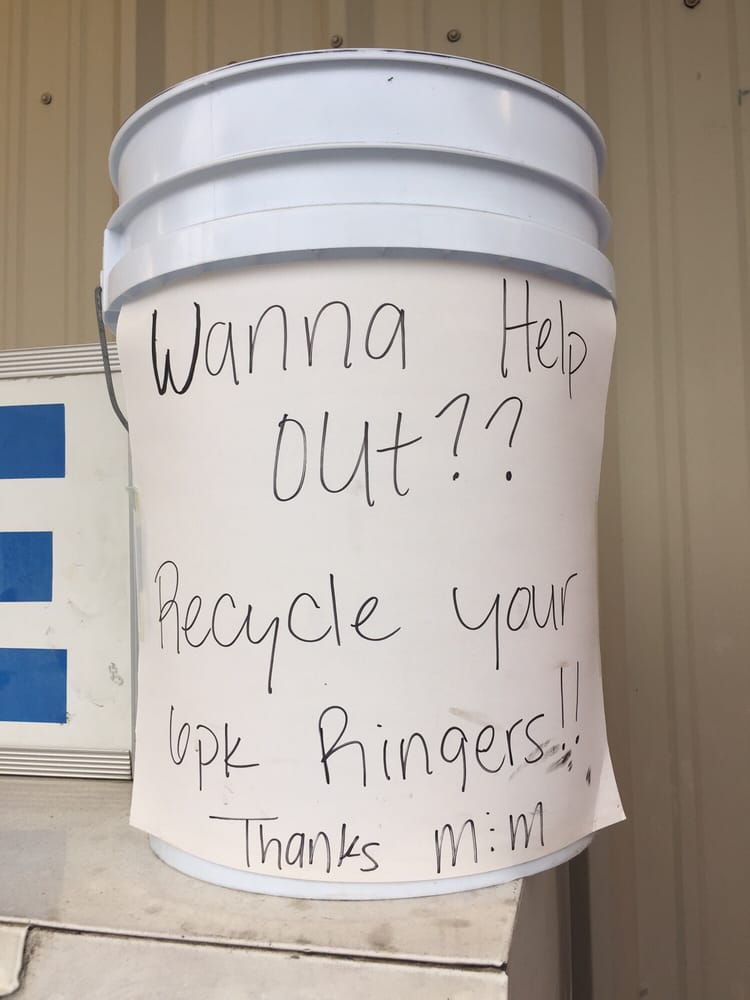 Wanna Help
Out??
Recycle your
6pk Ringers!!
Thanks M:M